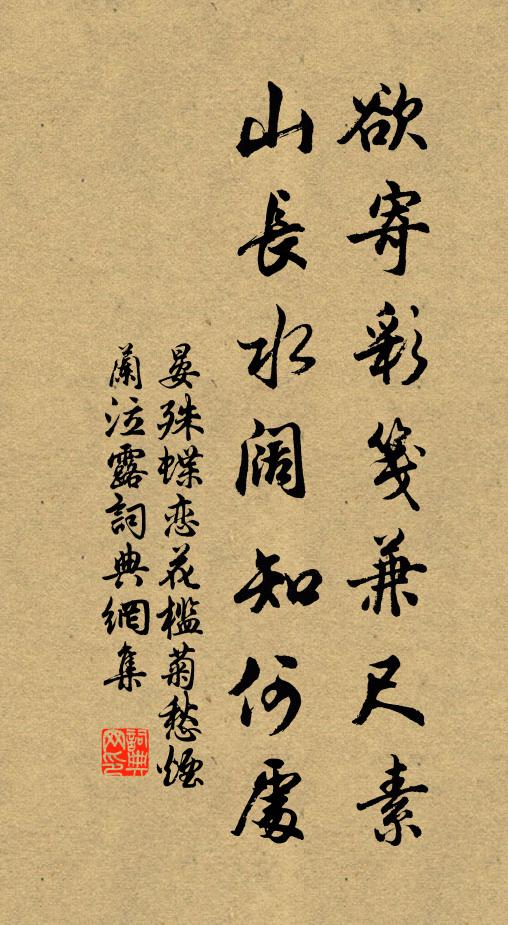 欲寄彩笺兼尺素
山長水阔知何處
晏殊蝶恋花檻菊愁煙
蘭泣露詞典網集
詞典
网印